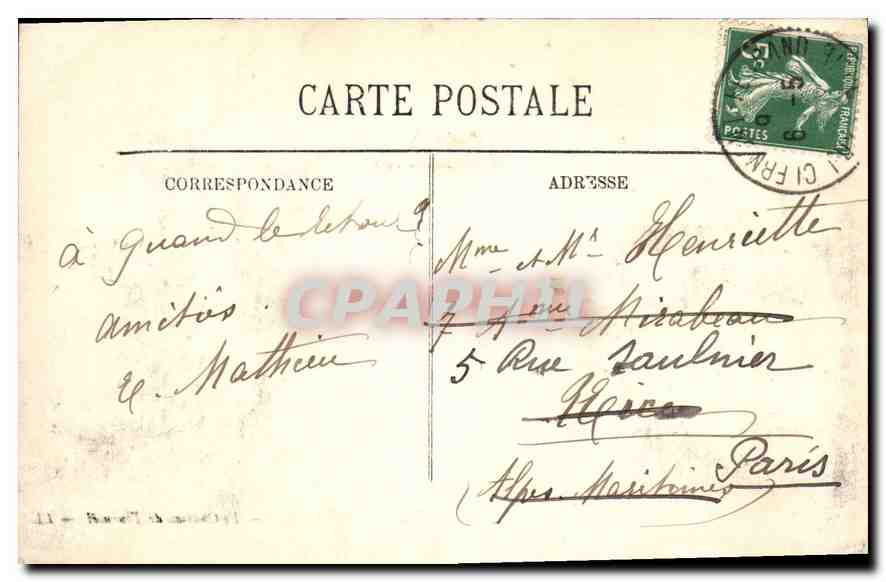 CARTE POSTALE
CORRESPONDANCE
ADRESSE
à quand le retour ?
amitiés.
E. Mathieu
Mme et Mr Henriette
7 Anue Mirabeau
5 Rue Saulnier
Nice
Paris
Alpes Maritimes
REPUBLIQUE FRANCAISE
POSTES
CPAPHIL